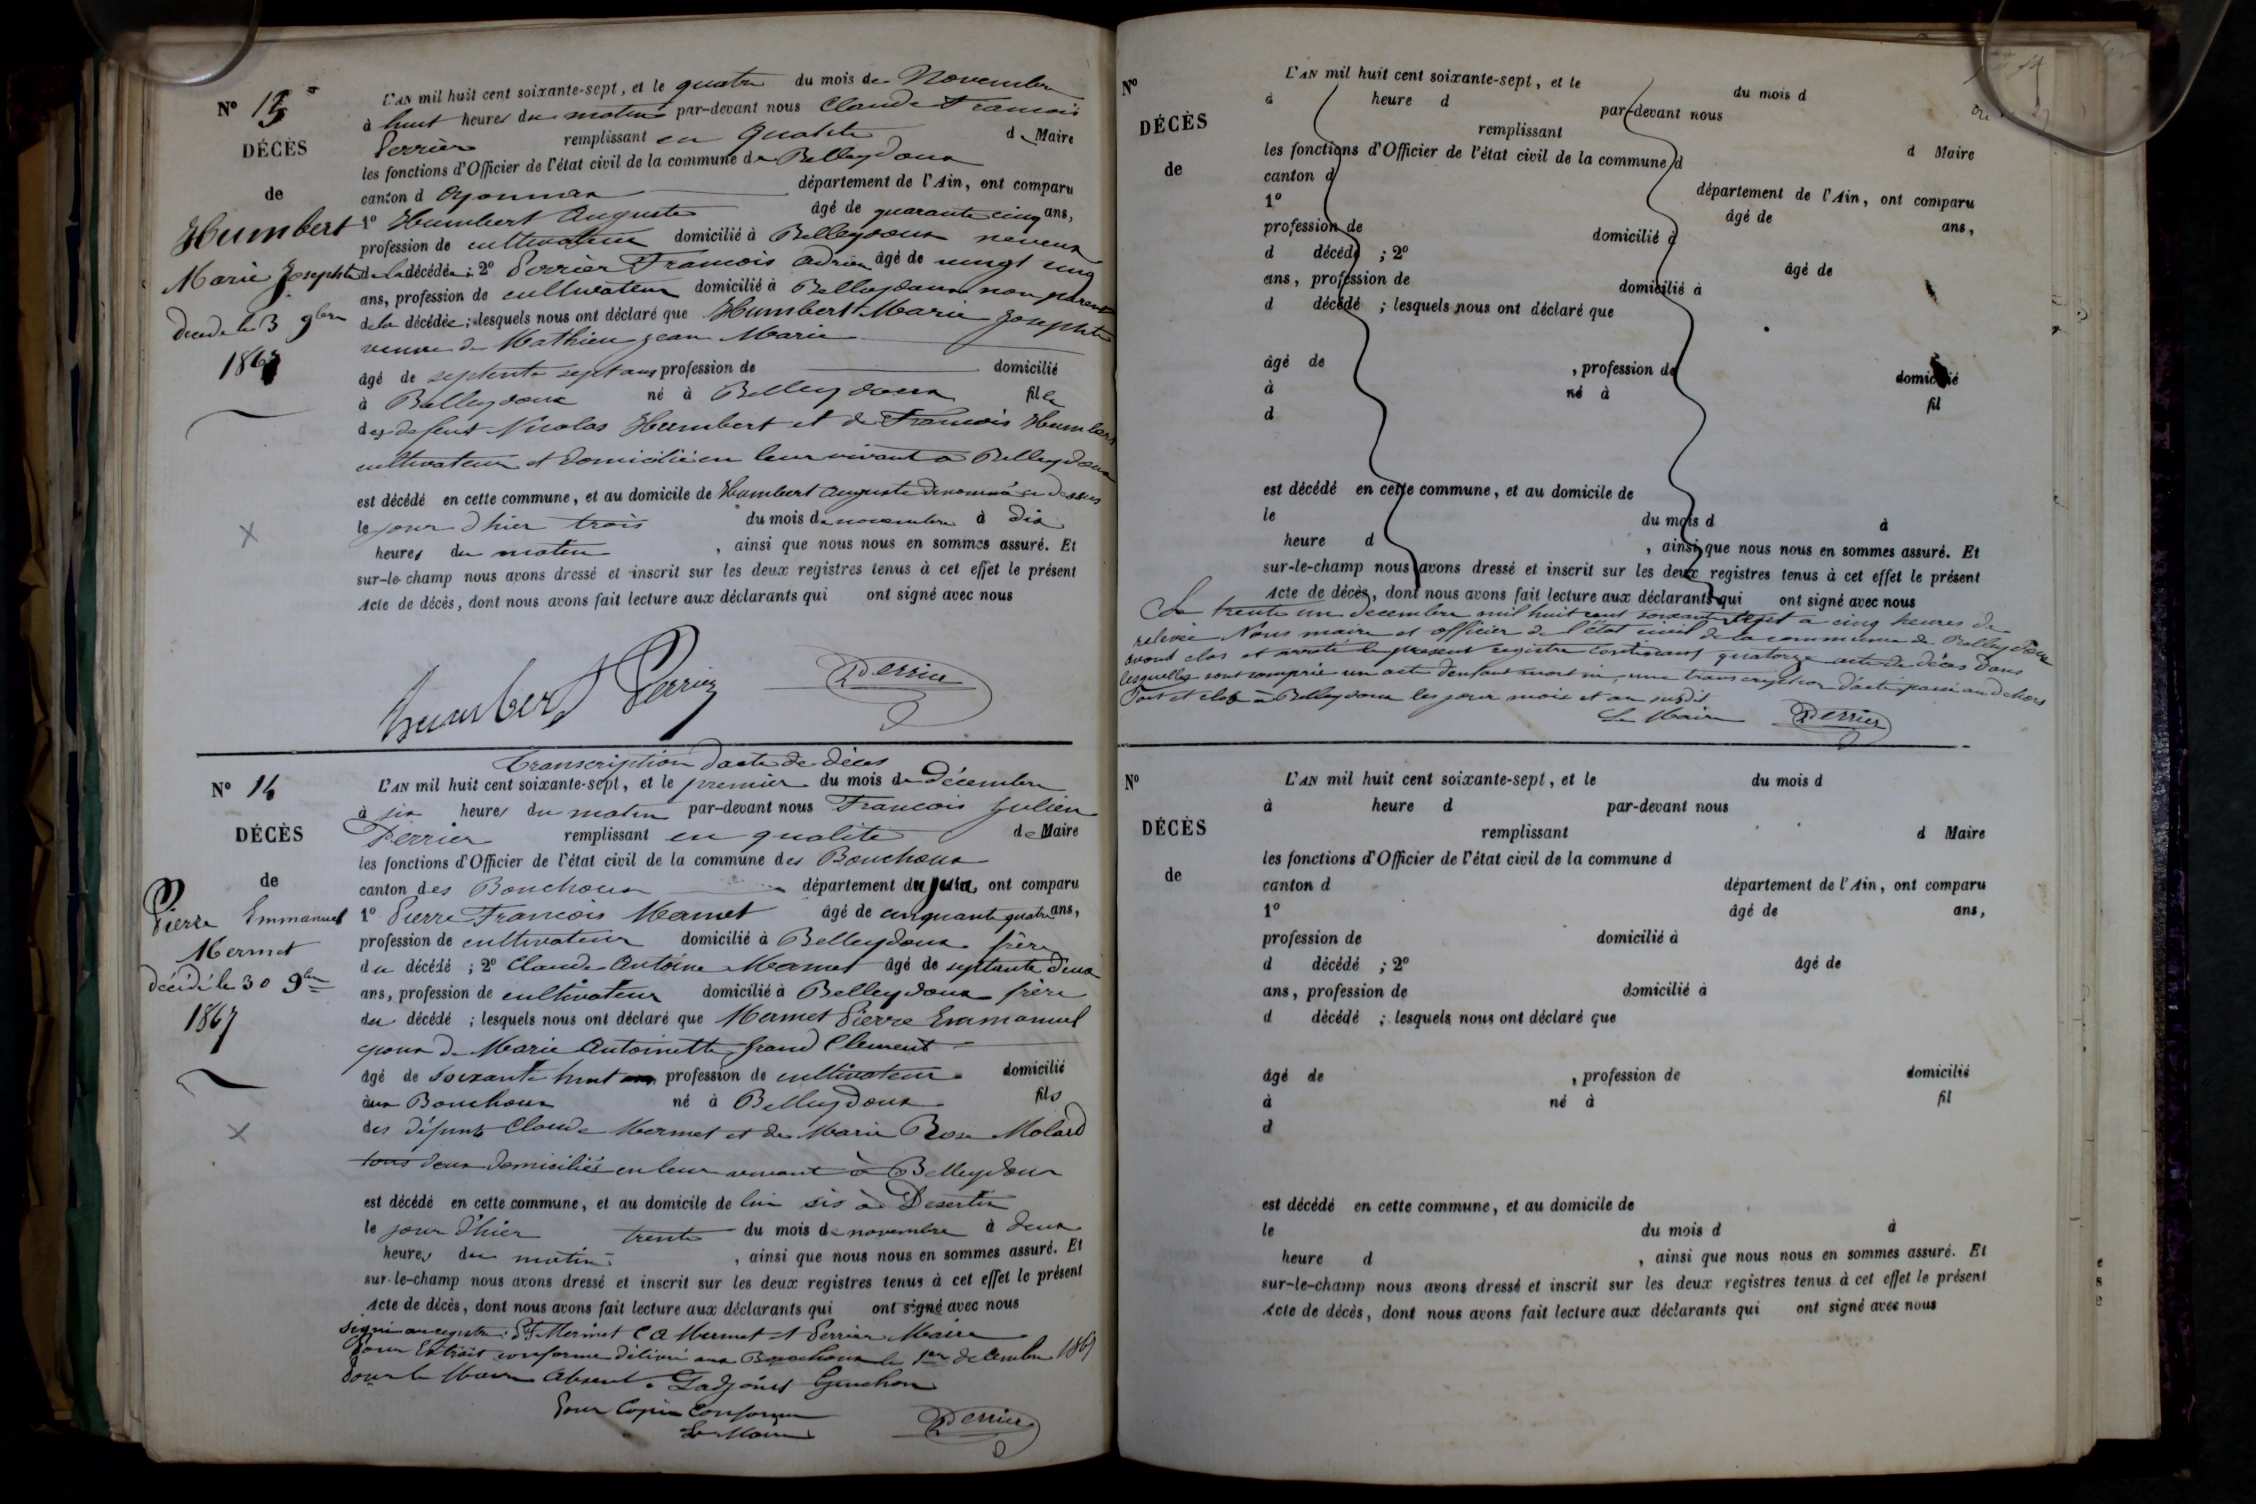 N° 13
DÉCÈS
de
Humbert
Marie Josephte
décédée le 3 9bre
1867
L'AN mil huit cent soixante-sept, et le quatre du mois de Novembre
à huit heures du matin par-devant nous Claude François
Perrier remplissant en qualité de Maire
les fonctions d'Officier de l'état civil de la commune de Belleydoux
canton d Oyonnax département de l'Ain, ont comparu
1° Humbert Auguste âgé de quarante cinq ans,
profession de cultivateur domicilié à Belleydoux neveux
de la décédée ; 2° Perrier François Adrien âgé de vingt cinq
ans, profession de cultivateur domicilié à Belleydoux non parent
de la décédée ; lesquels nous ont déclaré que Humbert Marie Josephte
veuve de Mathieu Jean Marie
âgé de septente sept ans profession de domicilié
à Belleydoux né à Belleydoux fille
des defunt Nicolas Humbert et de François Humbert
cultivateur et domicilié en leur vivant a Belleydoux
est décédé en cette commune, et au domicile de Humbert Auguste denommé ci dessus
le jour d'hier trois du mois de novembre à dix
heures du matin , ainsi que nous nous en sommes assuré. Et
sur-le-champ nous avons dressé et inscrit sur les deux registres tenus à cet effet le présent
Acte de décès, dont nous avons fait lecture aux déclarants qui ont signé avec nous
Humbert Perrier Perrier
N° 14
DÉCÈS
de
Pierre Emmanuel
Mermet
décédé le 30 9bre
1867
Transcription d'acte de décès
L'AN mil huit cent soixante-sept, et le premier du mois de Décembre
à six heures du matin par-devant nous François Julien
Perrier remplissant en qualité de Maire
les fonctions d'Officier de l'état civil de la commune des Bouchoux
canton des Bouchoux département du Jura, ont comparu
1° Pierre François Mermet âgé de cinquante quatre ans,
profession de cultivateur domicilié à Belleydoux frère
du décédé ; 2° Claude Antoine Mermet âgé de septante deux
ans, profession de cultivateur domicilié à Belleydoux frère
du décédé ; lesquels nous ont déclaré que Mermet Pierre Emmanuel
epoux de Marie Antoinette Grand Clement
âgé de soixante huit ans profession de cultivateur domicilié
aux Bouchoux né à Belleydoux fils
des défunts Claude Mermet et de Marie Rose Molard
tous deux domiciliés en leur vivant à Belleydoux
est décédé en cette commune, et au domicile de lui sis à Desertin
le jour d'hier trente du mois de novembre à deux
heures du matin , ainsi que nous nous en sommes assuré. Et
sur-le-champ nous avons dressé et inscrit sur les deux registres tenus à cet effet le présent
Acte de décès, dont nous avons fait lecture aux déclarants qui ont signé avec nous
Signé au registre : P F Mermet C A Mermet et Perrier Maire
Pour Extrait conforme délivré aux Bouchoux le 1er décembre 1867
Pour le Maire Absent L'adjoint
Pour Copie Conforme
Le Maire Perrier
N°
DÉCÈS
de
L'AN mil huit cent soixante-sept, et le du mois d
à heure d par-devant nous
remplissant d Maire
les fonctions d'Officier de l'état civil de la commune d
canton d département de l'Ain, ont comparu
1° âgé de ans,
profession de domicilié à
d décédé ; 2° âgé de
ans, profession de domicilié à
d décédé ; lesquels nous ont déclaré que
âgé de , profession de domicilié
à né à fil
d
est décédé en cette commune, et au domicile de
le du mois d à
heure d , ainsi que nous nous en sommes assuré. Et
sur-le-champ nous avons dressé et inscrit sur les deux registres tenus à cet effet le présent
Acte de décès, dont nous avons fait lecture aux déclarants qui ont signé avec nous
Le trente un decembre mil huit cent soixante sept a cinq heures de
relevée Nous maire et officier de l'état civil de la commune de Belleydoux
avons clos et arrêté le present registre contenant quatorze acte de décès dans
lesquelles sont comprie un acte d'enfant mort né, une transcription d'acte passé au dehors
Fait et clos à Belleydoux les jour mois et an susdit
Le Maire Perrier
N°
DÉCÈS
de
L'AN mil huit cent soixante-sept, et le du mois d
à heure d par-devant nous
remplissant d Maire
les fonctions d'Officier de l'état civil de la commune d
canton d département de l'Ain, ont comparu
1° âgé de ans,
profession de domicilié à
d décédé ; 2° âgé de
ans, profession de domicilié à
d décédé ; lesquels nous ont déclaré que
âgé de , profession de domicilié
à né à fil
d
est décédé en cette commune, et au domicile de
le du mois d à
heure d , ainsi que nous nous en sommes assuré. Et
sur-le-champ nous avons dressé et inscrit sur les deux registres tenus à cet effet le présent
Acte de décès, dont nous avons fait lecture aux déclarants qui ont signé avec nous